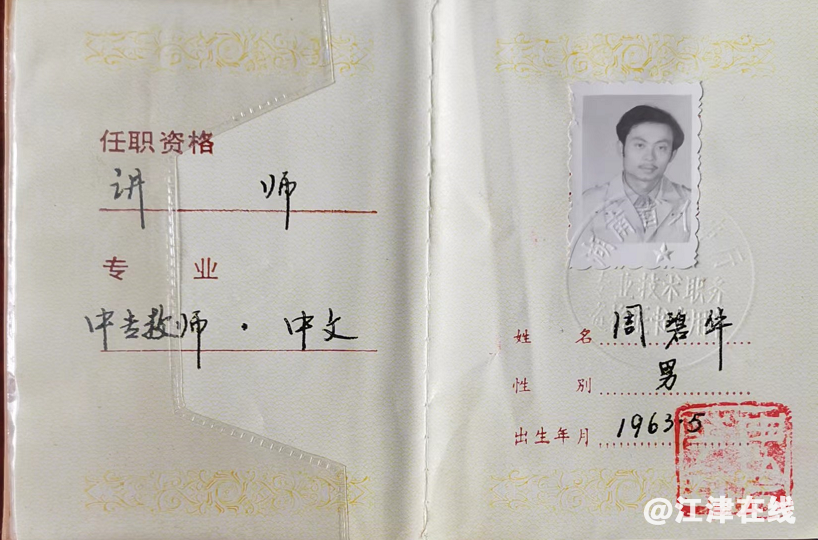 任职资格
讲 师
专 业
中专教师·中文
姓 名 周碧华
性 别 男
出生年月 1963.5
@江津在线